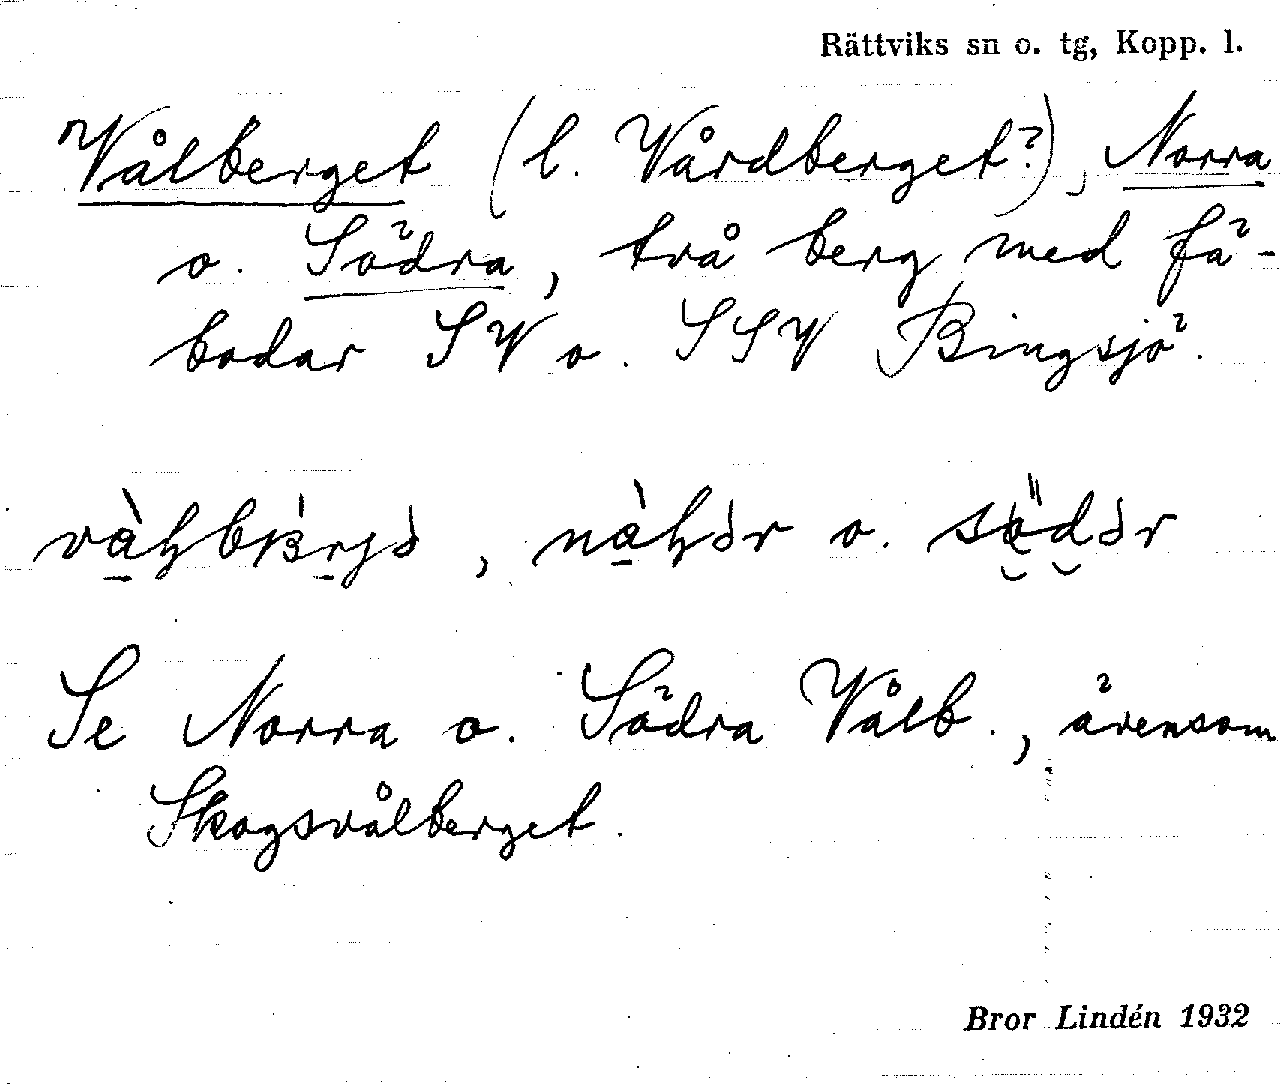 Rättviks sn o. tg, Kopp. l.
Vålberget (l. Vårdberget?), Norra
o. Södra, två berg med fä-
bodar SV o. SSV Bingsjö.
o.
Se Norra o. Södra Vålb., ävensom
Skogsvålberget.
Bror Lindén 1932